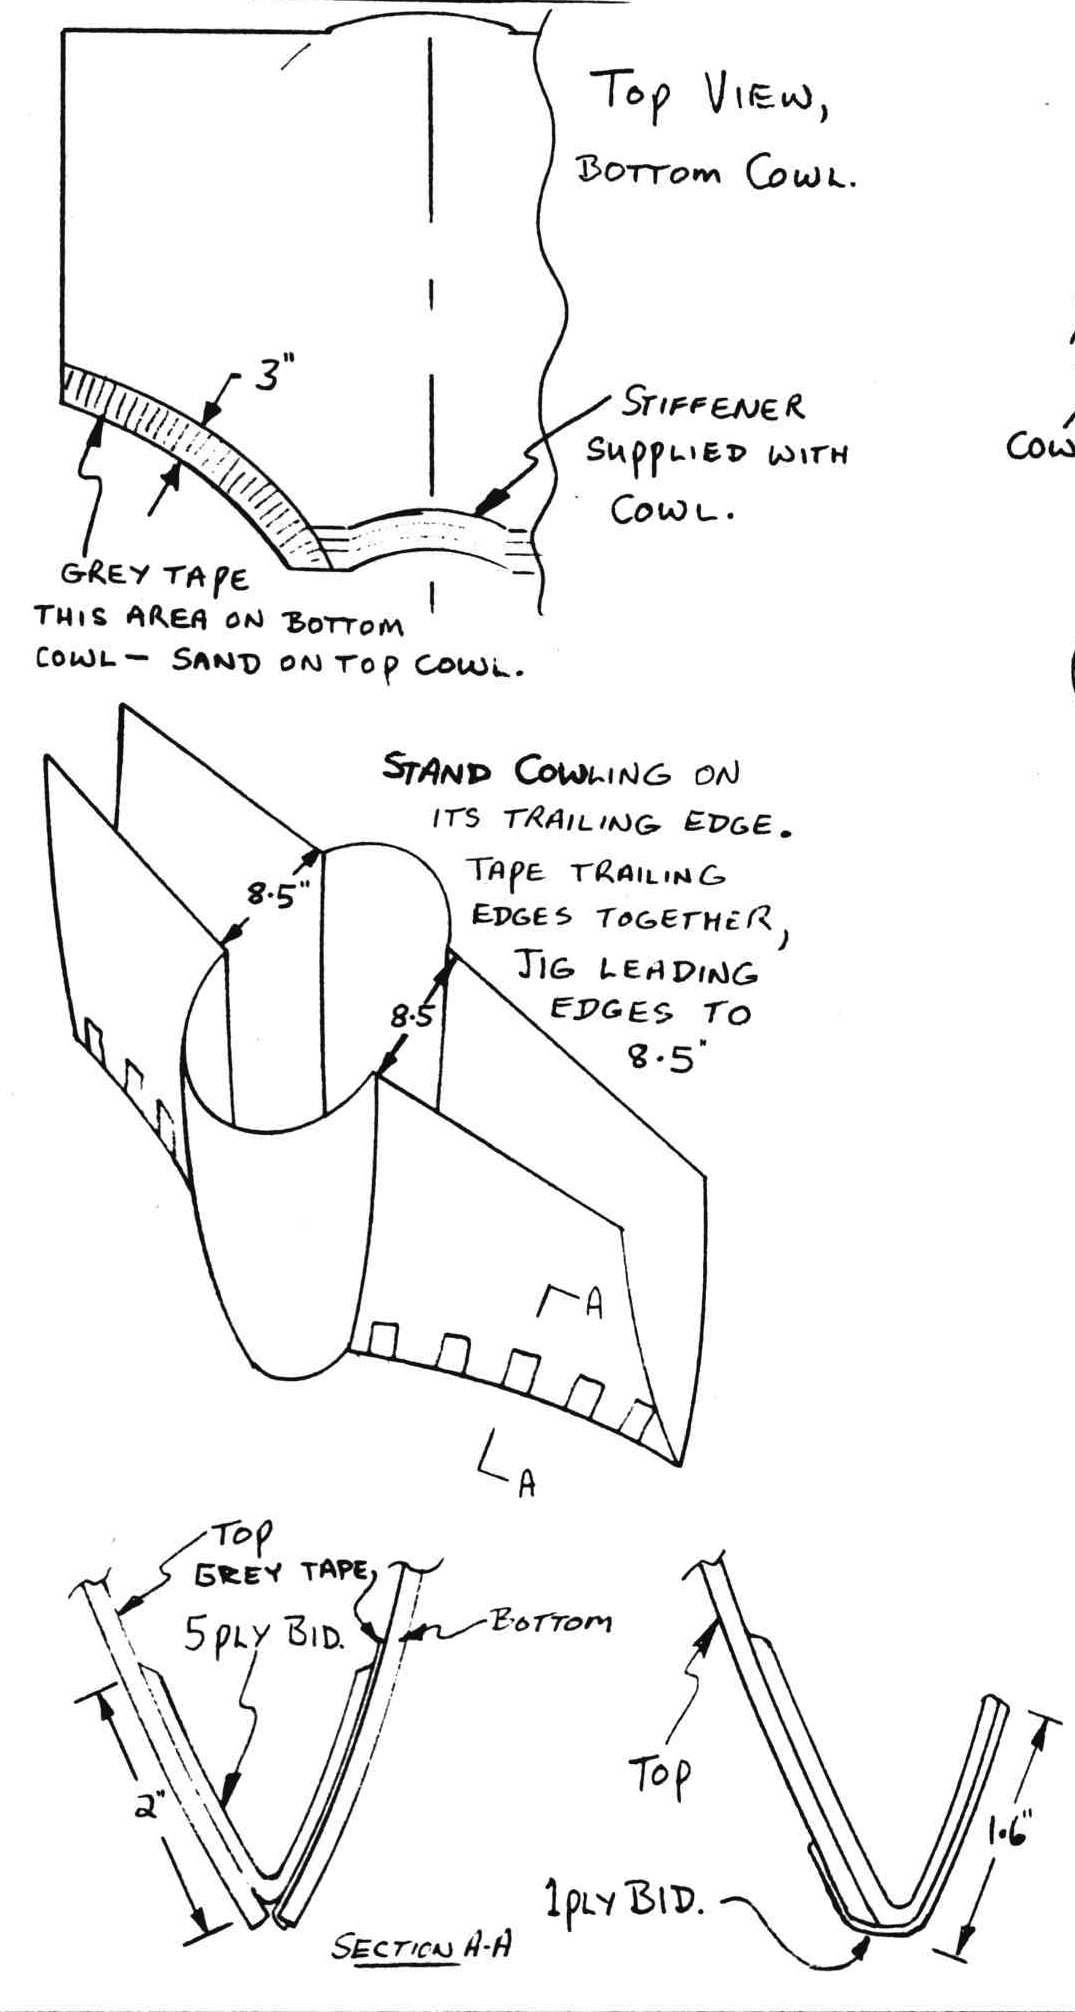 TOP VIEW,
BOTTOM COWL.
3"
STIFFENER
SUPPLIED WITH
COWL.
COW
GREY TAPE
THIS AREA ON BOTTOM
COWL - SAND ON TOP COWL.
STAND COWLING ON
ITS TRAILING EDGE.
TAPE TRAILING
EDGES TOGETHER,
JIG LEADING
EDGES TO
8.5"
8.5"
8.5
A
A
TOP
GREY TAPE,
5 PLY BID.
BOTTOM
2"
TOP
1.6"
1 PLY BID.
SECTION A-A